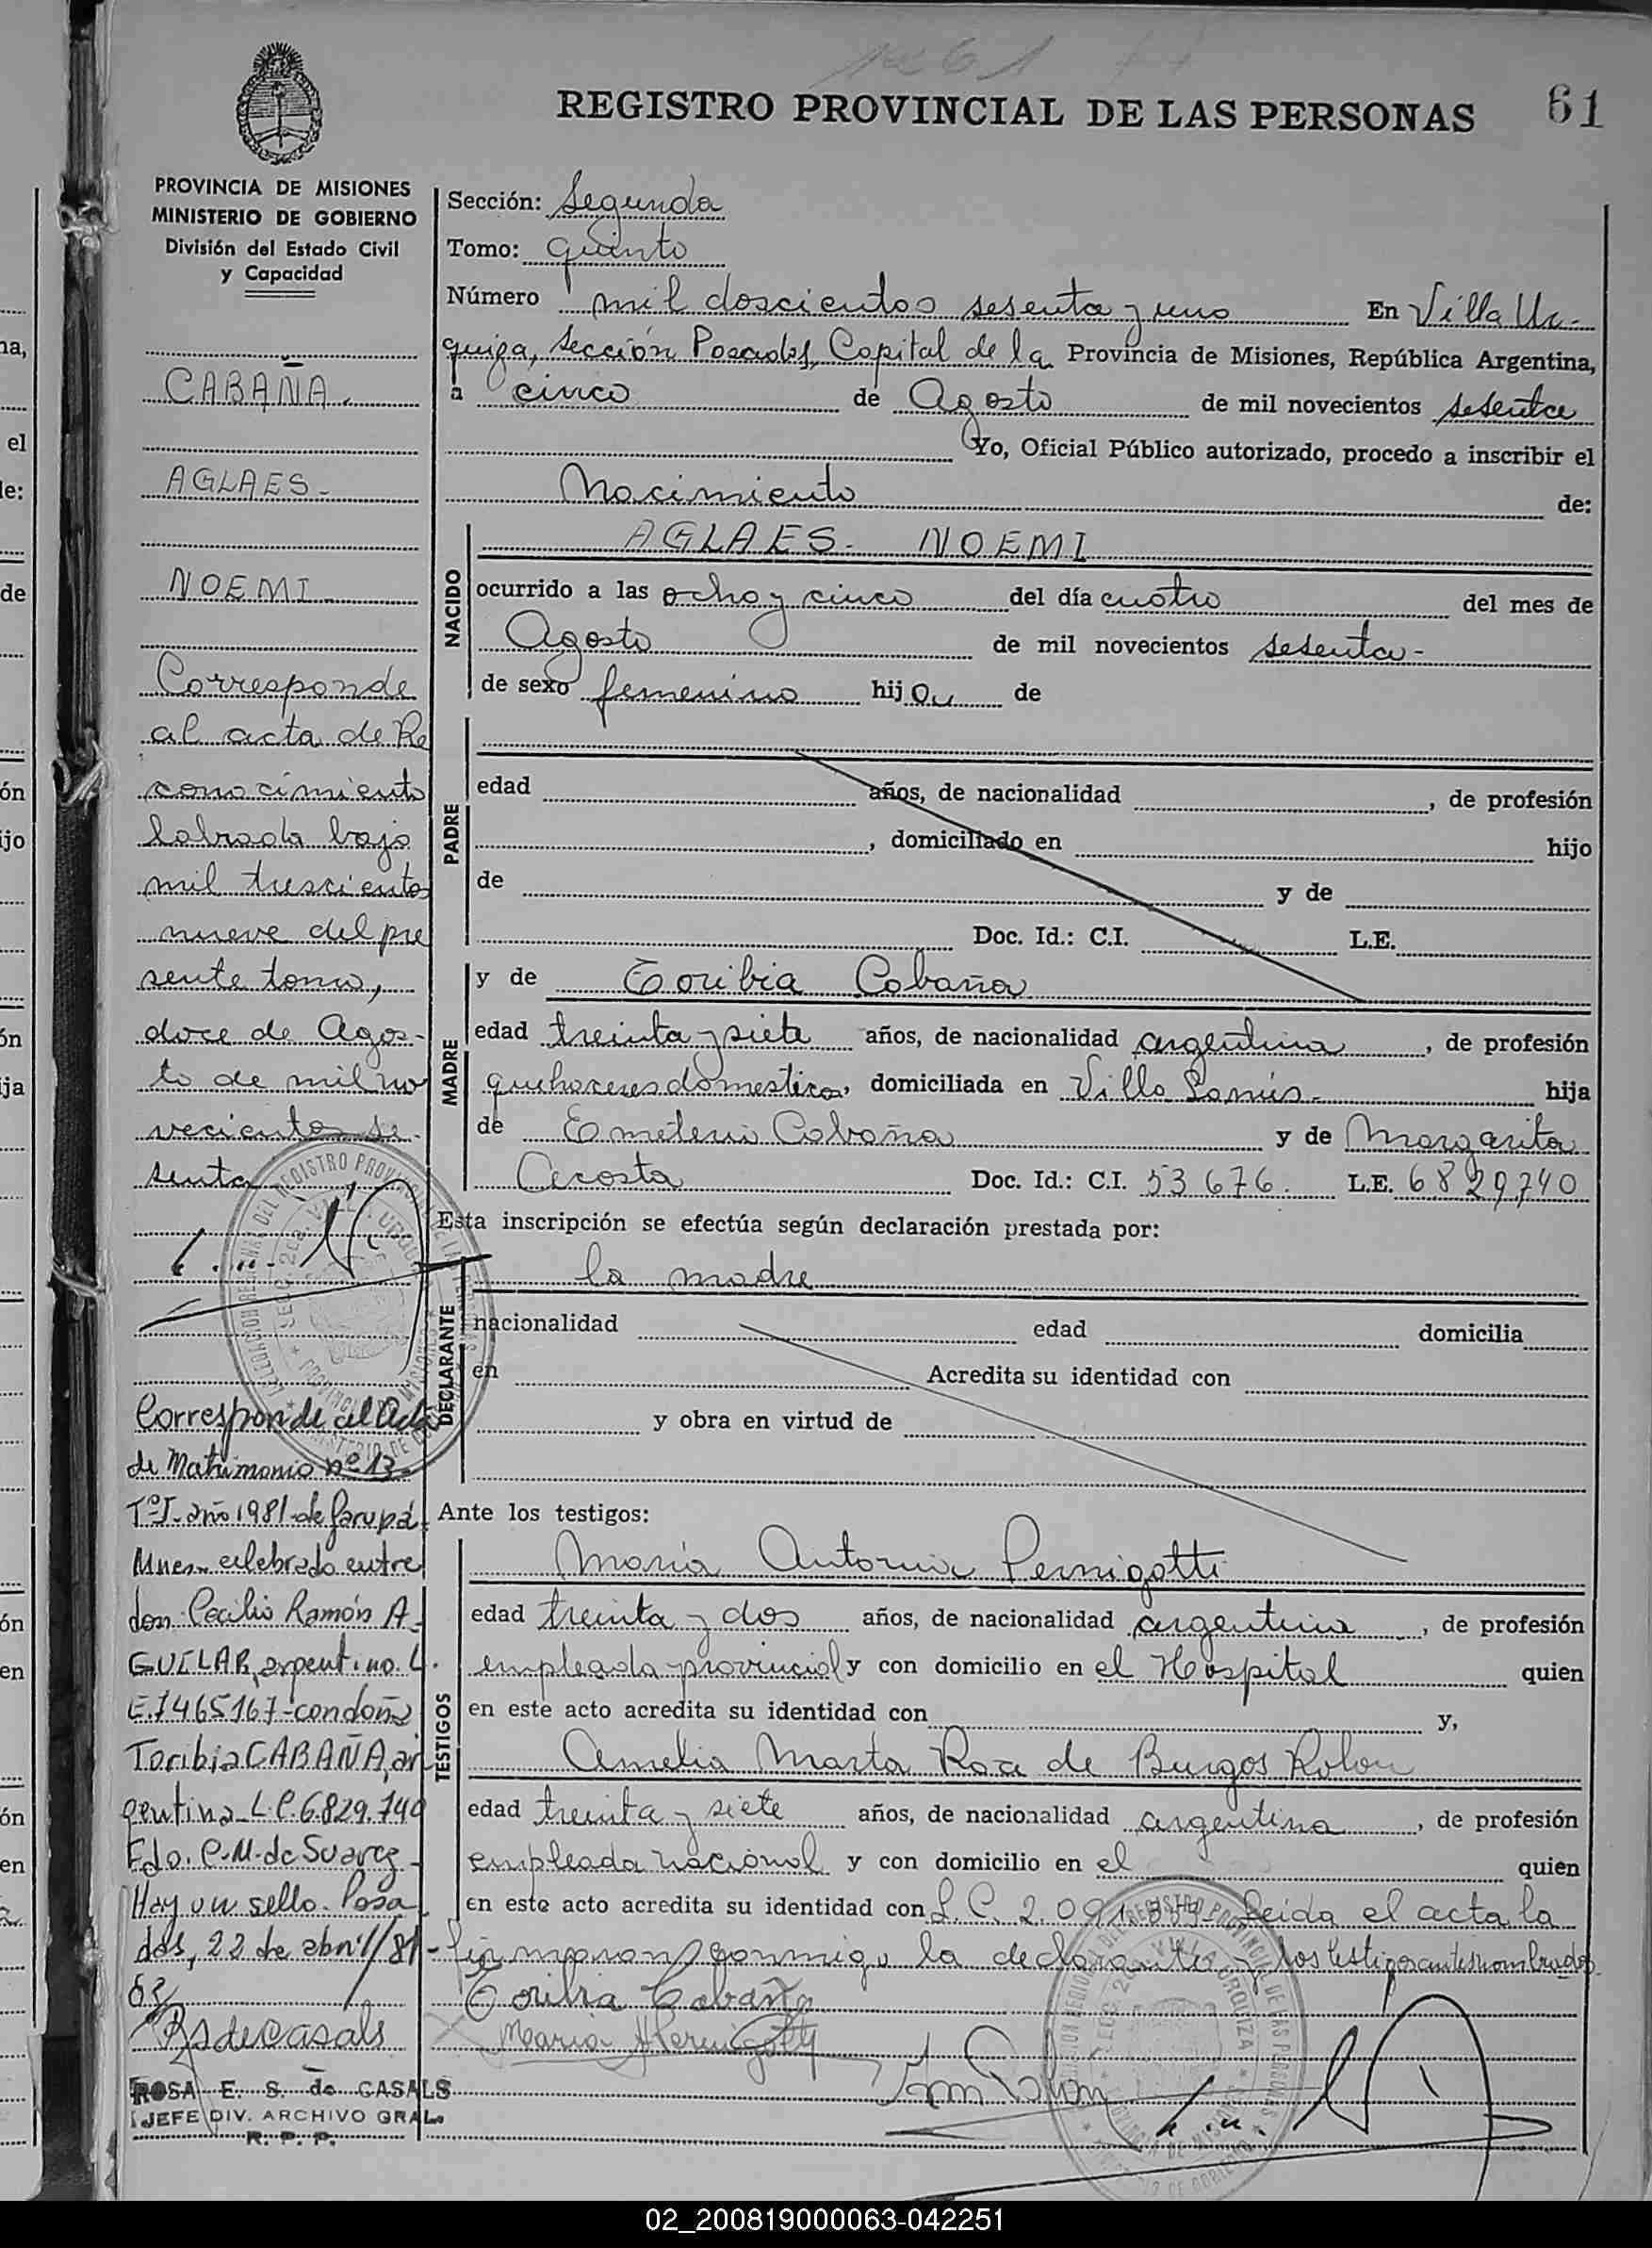 REGISTRO PROVINCIAL DE LAS PERSONAS
61
PROVINCIA DE MISIONES
MINISTERIO DE GOBIERNO
División del Estado Civil
y Capacidad
CABAÑA.
AGLAES-
NOEMI-
Corresponde
al acta de Re
conocimiento
labrada bajo
mil trescientos
nueve del pre
sente tomo,
doce de Agos-
to de mil no
vecientos se-
senta
Corresponde al Acta
de Matrimonio nº 13-
Tº I- año 1981- de Garupá
Mnes- celebrado entre
don Cecilio Ramón A-
GUILAR, argentino. L.
E. 7465167- con doña
Toribia CABAÑA, ar
gentina L.C. 6.829.740
Fdo. C.M. de Suarez-
Hay un sello- Posa
das, 22 de abril/81-
ROSA E. S. de CASALS
JEFE DIV. ARCHIVO GRAL.
R. P. P.
Sección: Segunda
Tomo: quinto
Número mil doscientos sesenta y uno En Villa Ur-
quiza, Sección Posadas, Capital de la Provincia de Misiones, República Argentina,
a cinco de Agosto de mil novecientos sesenta
Yo, Oficial Público autorizado, procedo a inscribir el
Nacimiento de:
NACIDO
AGLAES- NOEMI
ocurrido a las ocho y cinco del día cuatro del mes de
Agosto de mil novecientos sesenta-
de sexo femenino hija de
PADRE
edad años, de nacionalidad , de profesión
, domiciliado en hijo
de y de
Doc. Id.: C.I. L.E.
MADRE
y de Toribia Cabaña
edad treinta y siete años, de nacionalidad argentina, de profesión
quehaceres domesticos, domiciliada en Villa Lanús- hija
de Emeterio Cabaña y de Margarita
Acosta Doc. Id.: C.I. 53676. L.E. 6829740
Esta inscripción se efectúa según declaración prestada por:
DECLARANTE
la madre
nacionalidad edad domicilia
en Acredita su identidad con
y obra en virtud de
Ante los testigos:
TESTIGOS
Maria Antonia Pernigotti
edad treinta y dos años, de nacionalidad argentina, de profesión
empleada provincial y con domicilio en el Hospital quien
en este acto acredita su identidad con y,
Amelia Marta Roa de Burgos Rolon
edad treinta y siete años, de nacionalidad argentina, de profesión
empleada nacional y con domicilio en el quien
en este acto acredita su identidad con L.C. 2.091. Leida el acta la
firmaron conmigo la declarante y los testigos antes nombrados
Toribia Cabaña
02_200819000063-042251